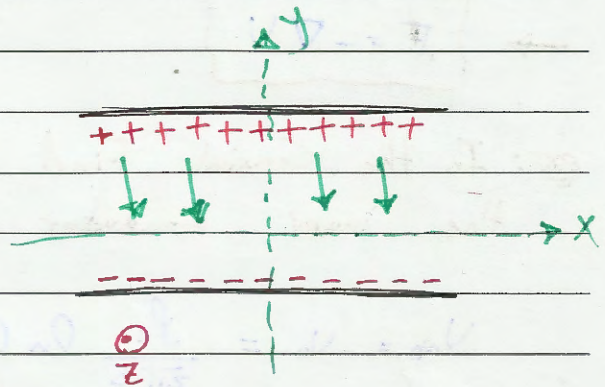 y
+ + + + + + + + + + +
x
- - - - - - - - - - -
z